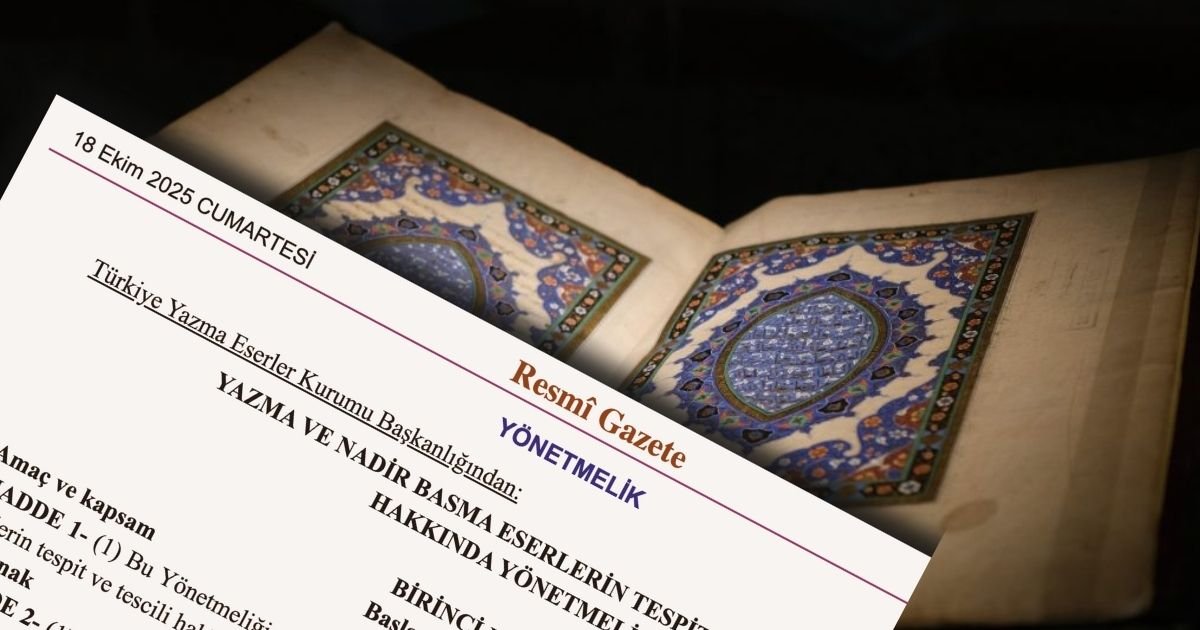 18 Ekim 2025 CUMARTESİ
Resmî Gazete
YÖNETMELİK
Türkiye Yazma Eserler Kurumu Başkanlığından:
YAZMA VE NADİR BASMA ESERLERİN
HAKKINDA
BİRİNCİ
Amaç ve kapsam
1- (1) Bu Yönetmeliği
tespit ve tescili
2-